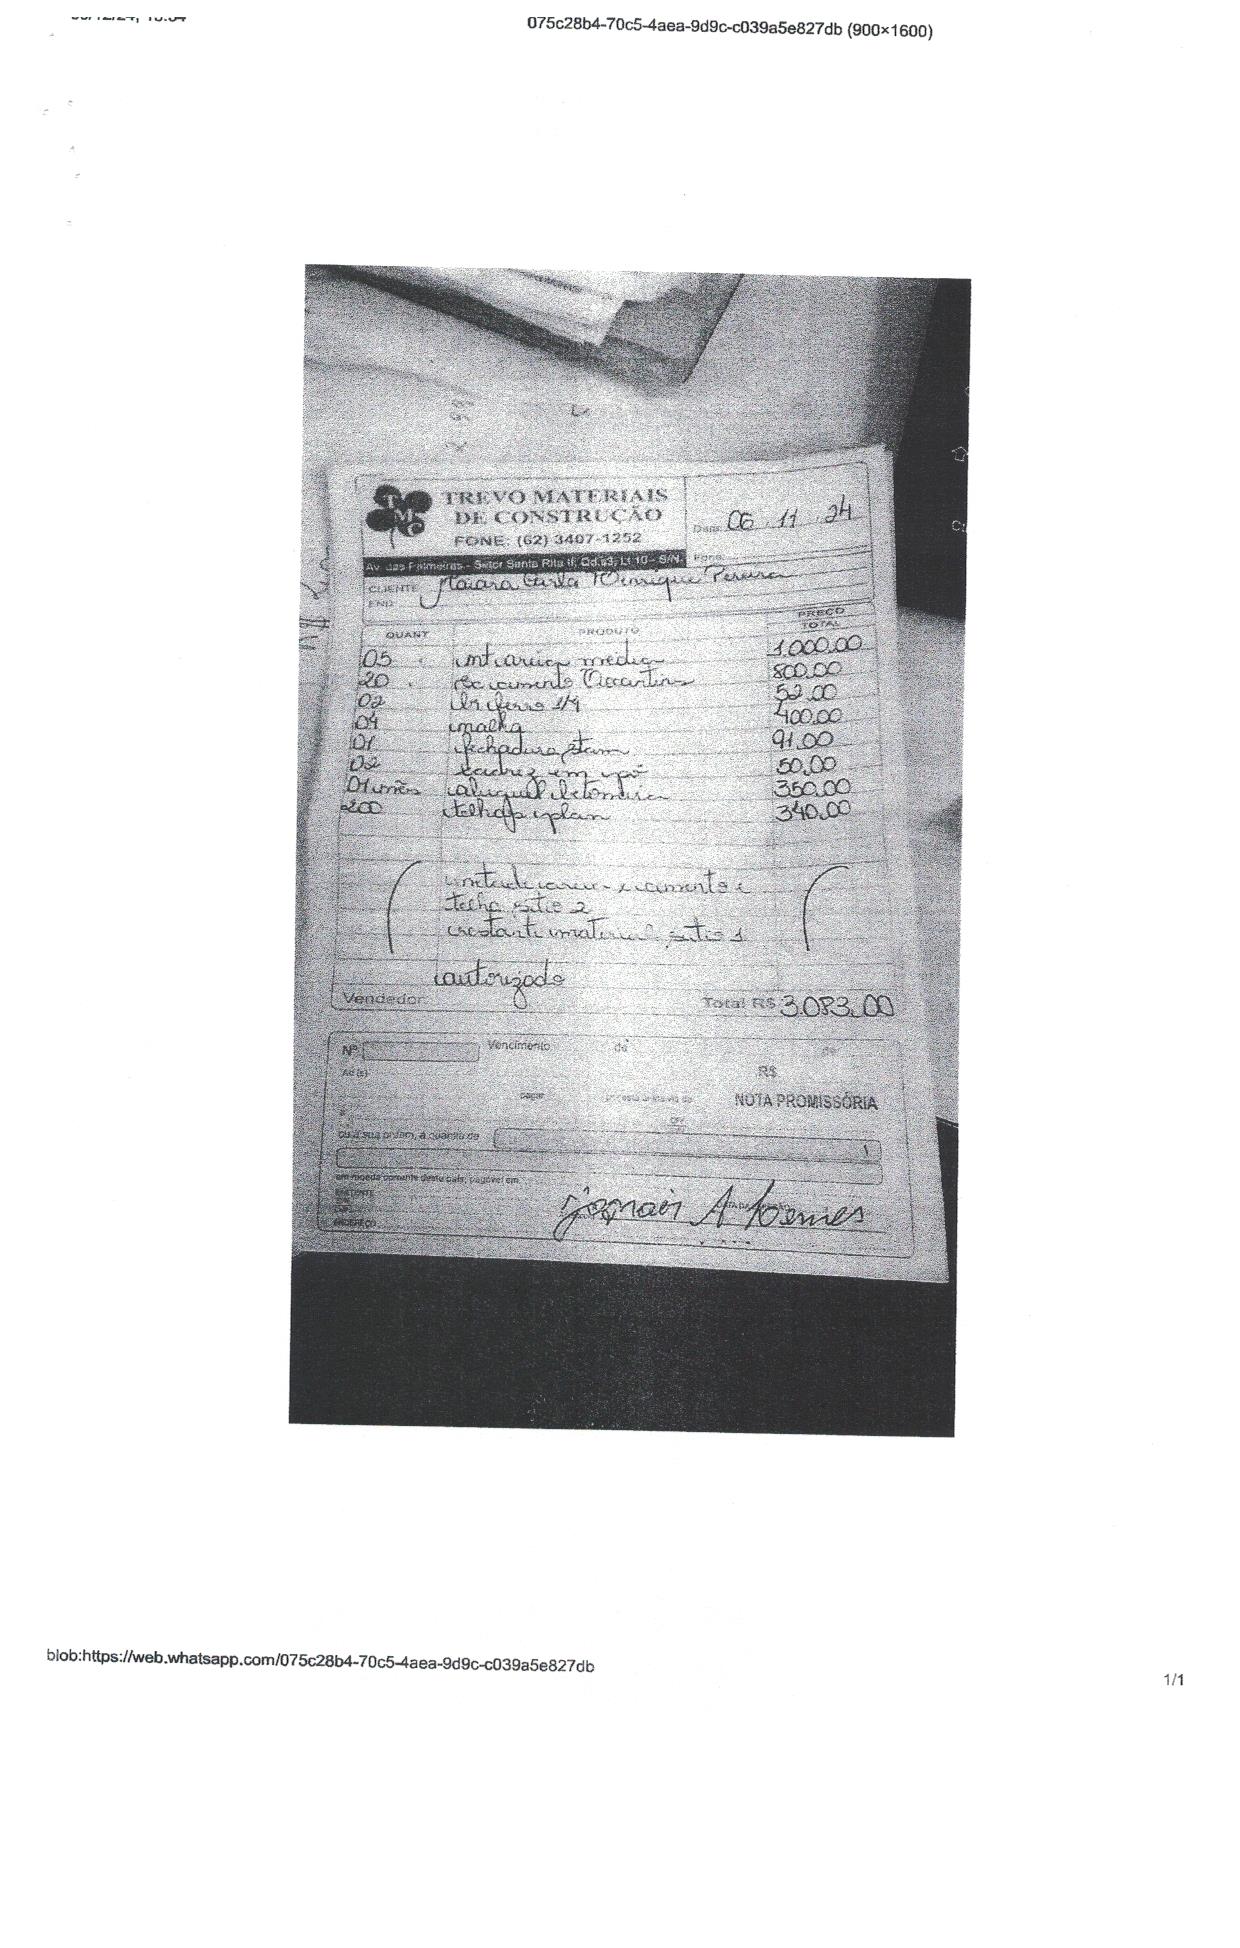 075c28b4-70c5-4aea-9d9c-c039a5e827db (900×1600)
TMC
TREVO MATERIAIS
DE CONSTRUÇÃO
FONE: (62) 3407-1252
Data 06 . 11 . 24
Av. das Palmeiras - Setor Santa Rita II, Qd.63, Lt.10 - S/N. Fone:
CLIENTE Maiara Carla Henrique Pereira
END.
QUANT PRODUTO PREÇO TOTAL
05 mt areia media 1.000.00
20 sc cimento Tocantins 800.00
02 br ferro 1/4 52.00
04 malha 400.00
01 fechadura stam 91.00
02 xadrez em pó 50.00
01 mês aluguel betoneira 350.00
200 telha plan 340.00
metade areia - cimento e
telha sitio 2
restante material sitio 1
autorizado
Vendedor: Total R$ 3.083.00
Nº Vencimento de de
R$
Ao(s)
pagar NOTA PROMISSÓRIA
ou à sua ordem, a quantia de
em moeda corrente deste país, pagável em
EMITENTE
ENDEREÇO
blob:https://web.whatsapp.com/075c28b4-70c5-4aea-9d9c-c039a5e827db
1/1